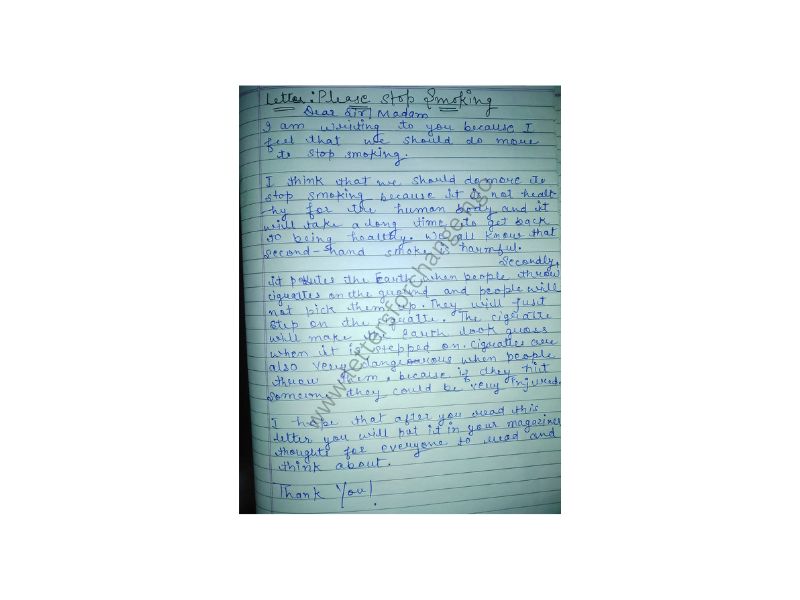 Letter: Please Stop Smoking
Dear Sir/ Madam
I am writing to you because I
feel that we should do more
to stop smoking.
I think that we should do more to
stop smoking because it is not healt
-hy for the human body and it
will take a long time to get back
to being healthy. We all know that
second-hand smoke is harmful.
Secondly,
it pollutes the Earth when people throw
ciguattes on the ground and people will
not pick them up. They will just
step on the ciguatte. The ciguatte
will make the Earth look guoss
when it is stepped on. ciguattes are
also very dangerous when people
throw them, because if they hit
someone they could be very injured.
I hope that after you read this
letter you will put it in your magazines
thoughts for everyone to read and
think about.
Thank You!
www.lettersforchange.ngo